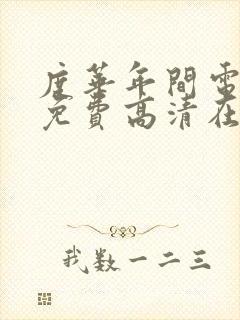 度華年閒電
免費高清在
我数一二三